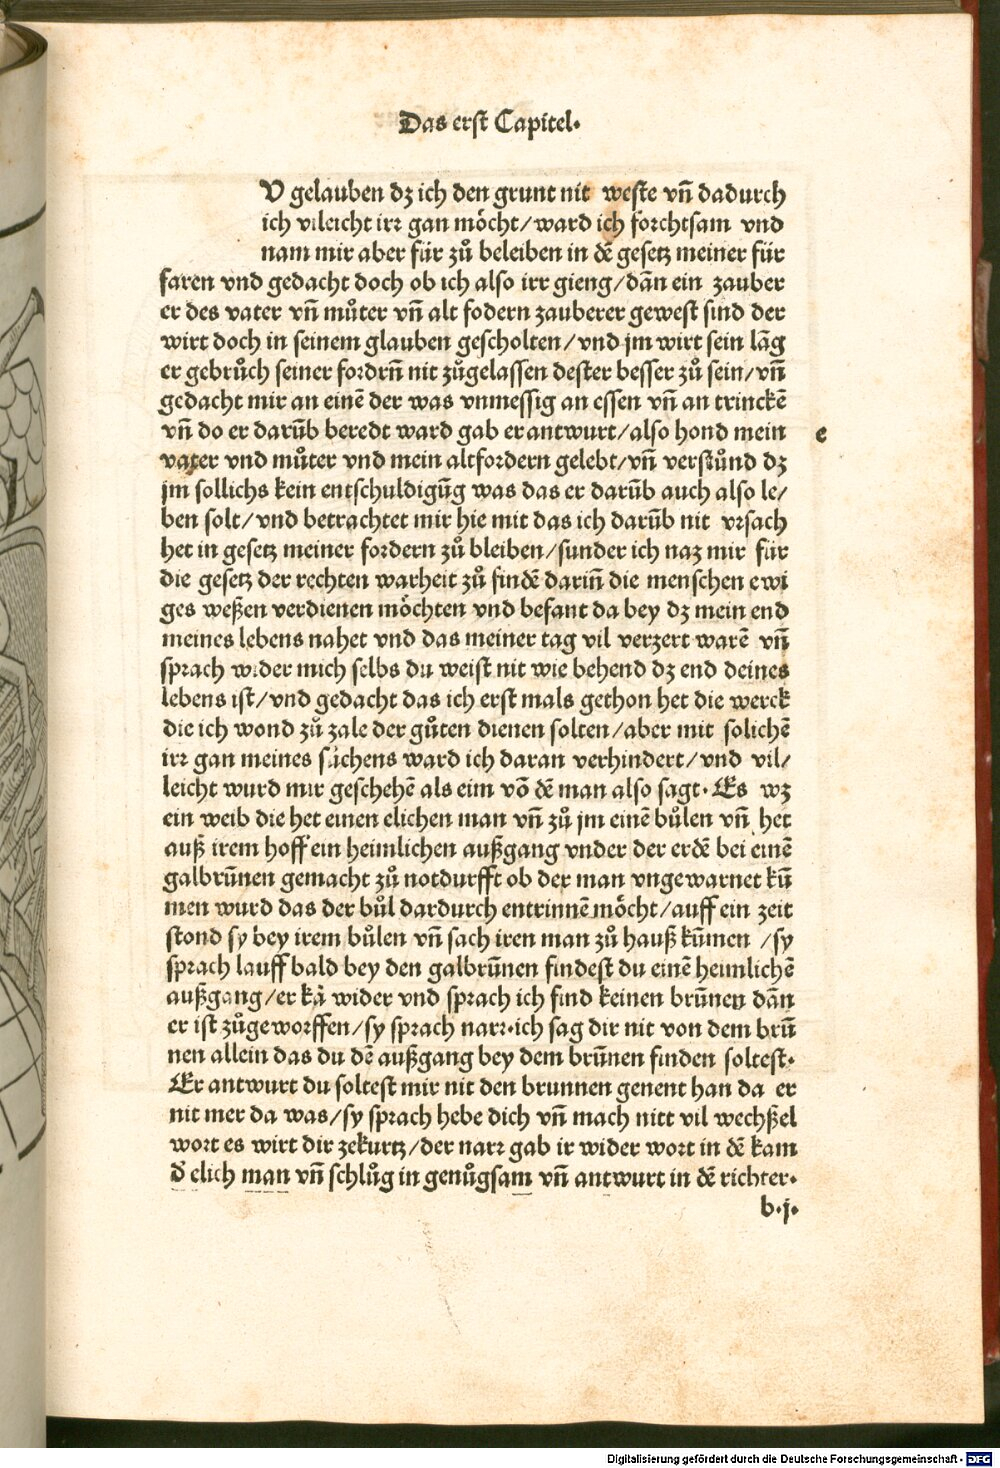 Das erst Capitel.
V gelauben dz ich den grunt nit weste vñ dadurch
ich vileicht irr gan möcht/ward ich forchtsam vnd
nam mir aber für zů beleiben in dē gesetz meiner für
faren vnd gedacht doch ob ich also irr gieng/dañ ein zauber
er des vater vñ můter vñ alt fodern zauberer gewest sind der
wirt doch in seinem glauben gescholten/vnd jm wirt sein lāg
er gebrůch seiner fordrñ nit zůgelassen dester besser zů sein/vñ
gedacht mir an einē der was vnmessig an essen vñ an trinckē
vñ do er darūb beredt ward gab er antwurt/also hond mein
e
vater vnd můter vnd mein altfordern gelebt/vñ verstůnd dz
jm sollichs kein entschuldigūg was das er darūb auch also le/
ben solt/vnd betrachtet mir hie mit das ich darūb nit vrsach
het in gesetz meiner fordern zů bleiben/sunder ich naz mir für
die gesetz der rechten warheit zů findē dariñ die menschen ewi
ges weßen verdienen möchten vnd befant da bey dz mein end
meines lebens nahet vnd das meiner tag vil verzert warē vñ
sprach wider mich selbs du weist nit wie behend dz end deines
lebens ist/vnd gedacht das ich erst mals gethon het die werck
die ich wond zů zale der gůten dienen solten/aber mit solichē
irr gan meines sůchens ward ich daran verhindert/vnd vil/
leicht wurd mir geschehē als eim vō dē man also sagt. Es wz
ein weib die het einen elichen man vñ zů jm einē bůlen vñ het
auß irem hoff ein heimlichen außgang vnder der erdē bei einē
galbrūnen gemacht zů notdurfft ob der man vngewarnet kū
men wurd das der bůl dardurch entrinnē möcht/auff ein zeit
stond sy bey irem bůlen vñ sach iren man zů hauß kūmen /sy
sprach lauff bald bey den galbrūnen findest du einē heimlichē
außgang/er kā wider vnd sprach ich find keinen brūnen dān
er ist zůgeworffen/sy sprach narr.ich sag dir nit von dem brū
nen allein das du dē außgang bey dem brūnen finden soltest.
Er antwurt du soltest mir nit den brunnen genent han da er
nit mer da was/sy sprach hebe dich vñ mach nitt vil wechßel
wort es wirt dir zekurtz/der narr gab ir wider wort in dē kam
d̄ elich man vñ schlůg in genůgsam vñ antwurt in dē richter.
b.j.
Digitalisierung gefördert durch die Deutsche Forschungsgemeinschaft - DFG